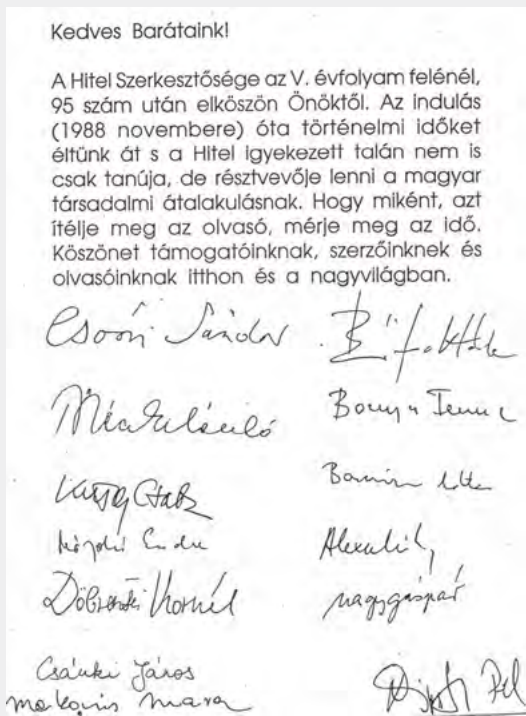 Kedves Barátaink!
A Hitel Szerkesztősége az V. évfolyam felénél,
95 szám után elköszön Önöktől. Az indulás
(1988 novembere) óta történelmi időket
éltünk át s a Hitel igyekezett talán nem is
csak tanúja, de résztvevője lenni a magyar
társadalmi átalakulásnak. Hogy miként, azt
ítélje meg az olvasó, mérje meg az idő.
Köszönet támogatóinknak, szerzőinknek és
olvasóinknak itthon és a nagyvilágban.
Csoóri Sándor
Döbrentei Kornél
nagygáspár
Csánki János